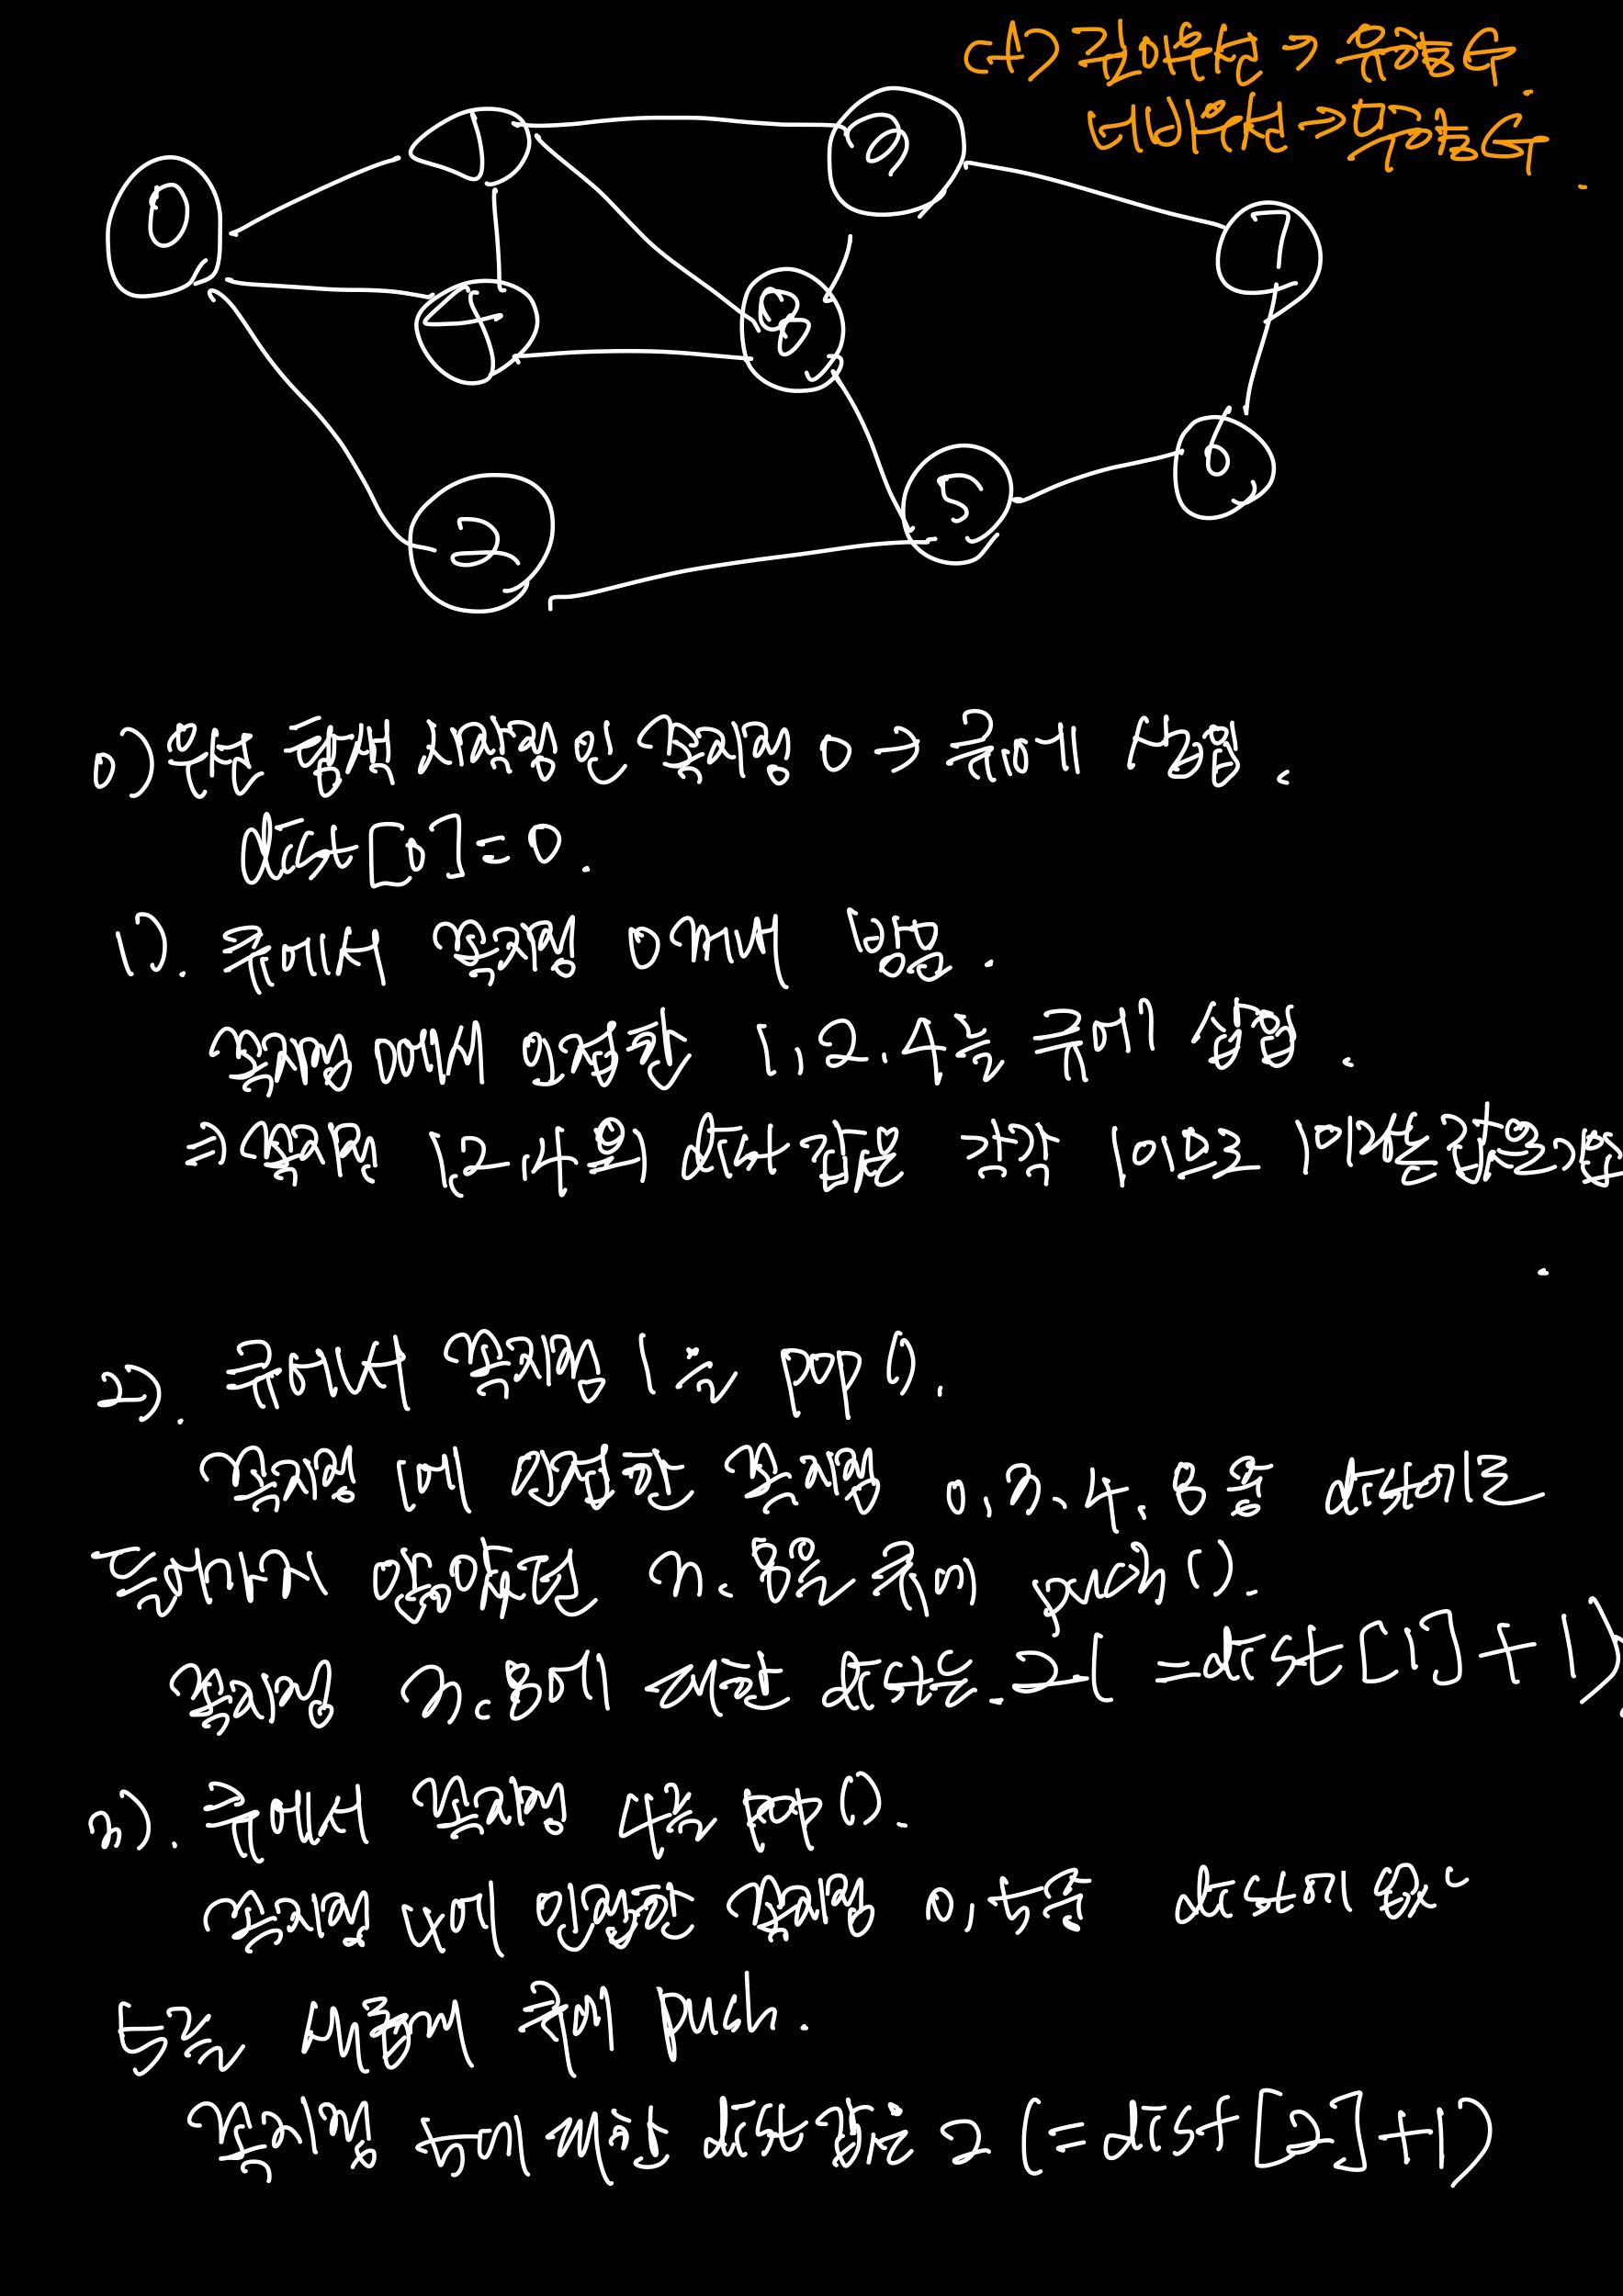 (+) 깊이우선 → 유향G.
너비우선 → 무향G.
0
1
3
7
4
8
6
5
2
0) 우선 탐색 시작점인 꼭지점 0 → 큐에 삽입.
dist[0]=0.
1). 큐에서 꼭지점 0 꺼내 방문.
꼭지점 0에서 인접한 1, 2. 4를 큐에 삽입.
⇒ 꼭지점 1, 2. 4의 dist 값은 각각 1이므로 1이라는 값을
2). 큐에서 꼭지점 1을 pop().
꼭지점 1에 인접한 꼭지점 0, 3. 4. 8 중 dist에
들어가지 않았던 3. 8을 큐에 push().
꼭지점 3. 8에 대한 dist는 2 (=dist[1]+1)
3). 큐에서 꼭지점 4를 pop().
꼭지점 4에 인접한 꼭지점 0, 5중 dist에 없는
5를 새롭게 큐에 push.
꼭지점 5에 대한 dist 값은 2 (=dist[2]+1)